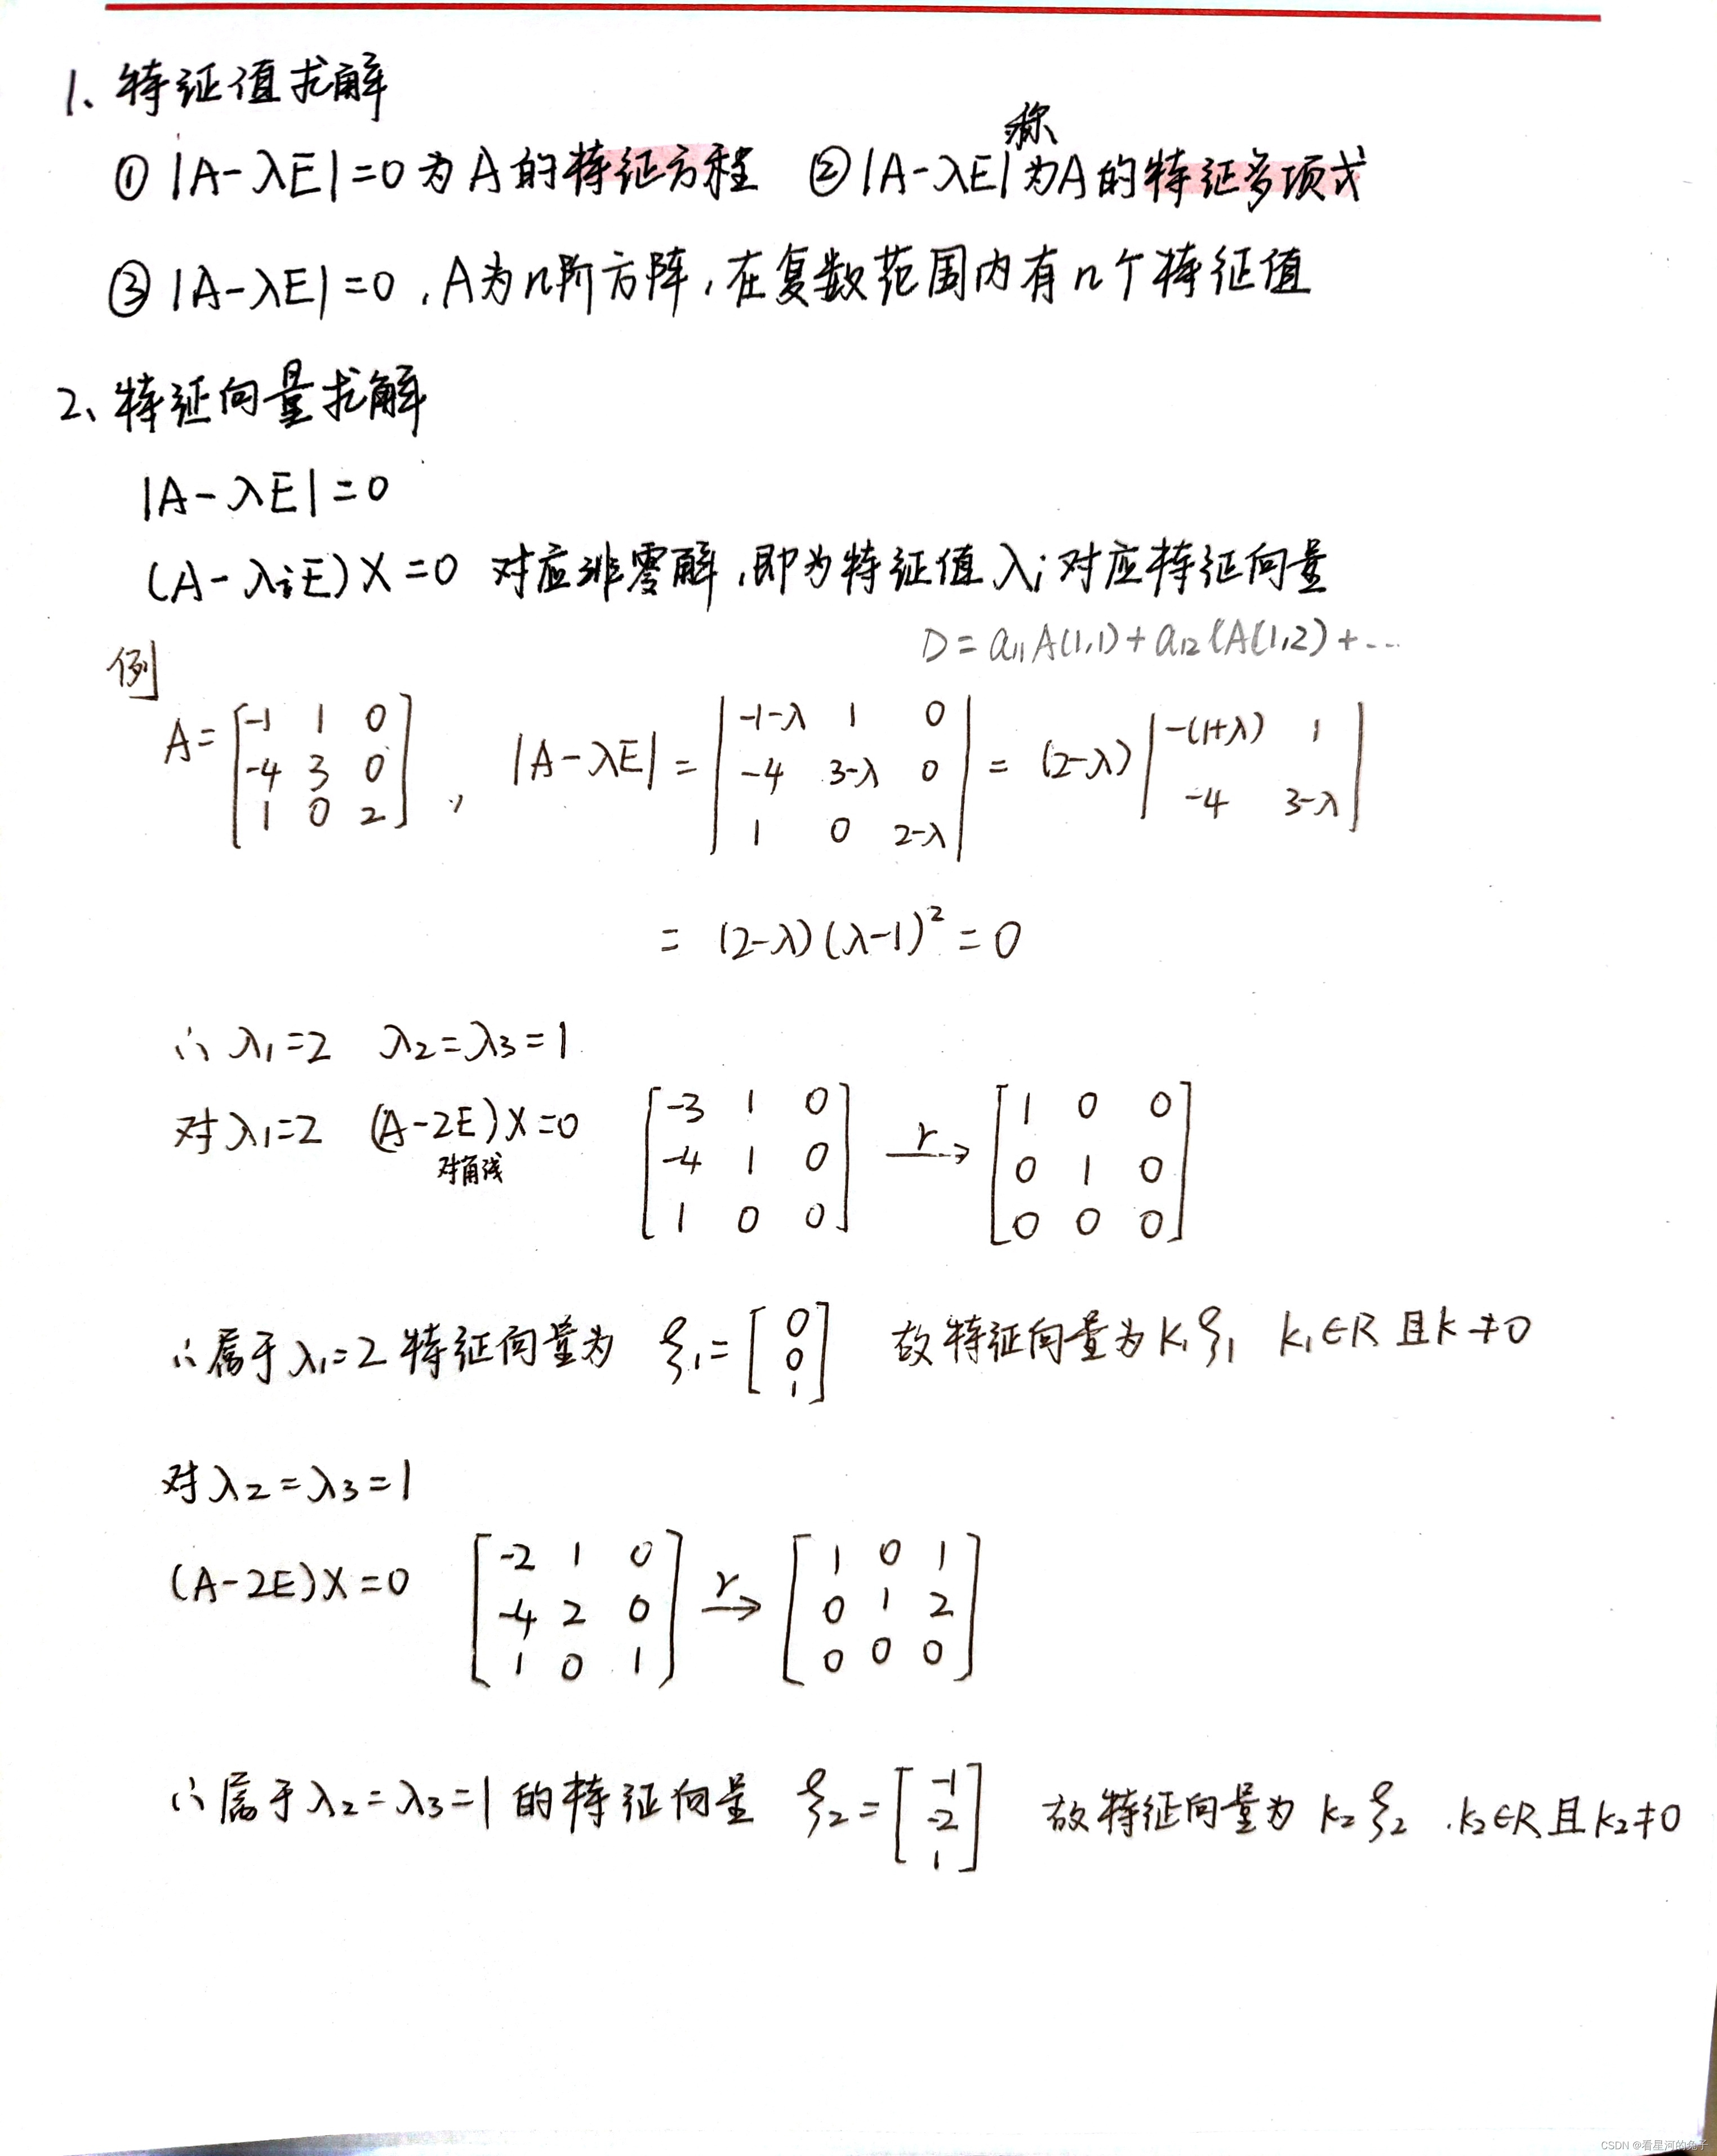 1、特征值求解
① |A-λE|=0 为 A 的特征方程 ② |A-λE| 称为A的特征多项式
③ |A-λE|=0，A为n阶方阵，在复数范围内有n个特征值
2、特征向量求解
|A-λE|=0
(A-λiE)X=0 对应非零解，即为特征值λi对应特征向量
D=a11A(1,1)+a12(A(1,2)+...
例
A= [-1 1 0; -4 3 0; 1 0 2], |A-λE| = |-1-λ 1 0; -4 3-λ 0; 1 0 2-λ| = (2-λ) |-(1+λ) 1; -4 3-λ|
= (2-λ)(λ-1)²=0
∴ λ1=2 λ2=λ3=1
对λ1=2 (A-2E)X=0 [-3 1 0; -4 1 0; 1 0 0] r→ [1 0 0; 0 1 0; 0 0 0]
对角线
∴属于λ1=2 特征向量为 ξ1=[0; 0; 1] 故特征向量为 k1ξ1 k1∈R 且k≠0
对λ2=λ3=1
(A-2E)X=0 [-2 1 0; -4 2 0; 1 0 1] r→ [1 0 1; 0 1 2; 0 0 0]
∴属于λ2=λ3=1的特征向量 ξ2=[-1; -2; 1] 故特征向量为 k2ξ2 .k2∈R且k2≠0
CSDN @看星河的兔子